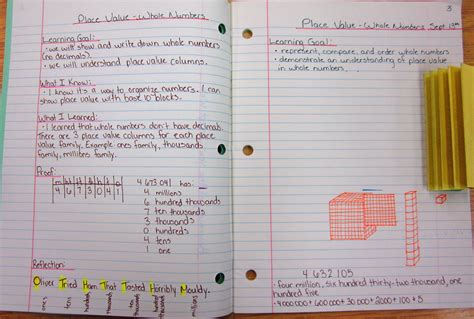 Place Value - Whole Numbers
Learning Goal:
• we will show and write down whole numbers
(no decimals).
• we will understand place value columns.
What I Know:
• I know it's a way to organize numbers. I can
show place value with base 10 blocks.
What I Learned:
• I learned that whole numbers don't have decimals.
There are 3 place value columns for each place
value family. Example: ones family, thousands
family, millions family.
Proof:
4 6 7 3 0 4 1
4 673 041 has:
4 millions
6 hundred thousands
7 ten thousands
3 thousands
0 hundreds
4 tens
1 one
Reflection:
Oliver Tried Ham That Tasted Horribly Mouldy.
ones
tens
3
Place Value - Whole Numbers Sept 12th
Learning Goal:
• represent, compare, and order whole numbers
• demonstrate an understanding of place value
in whole numbers...
4 632 105
• four million, six hundred thirty-two thousand, one
hundred five
• 4 000 000 + 600 000 + 30 000 + 2000 + 100 + 5